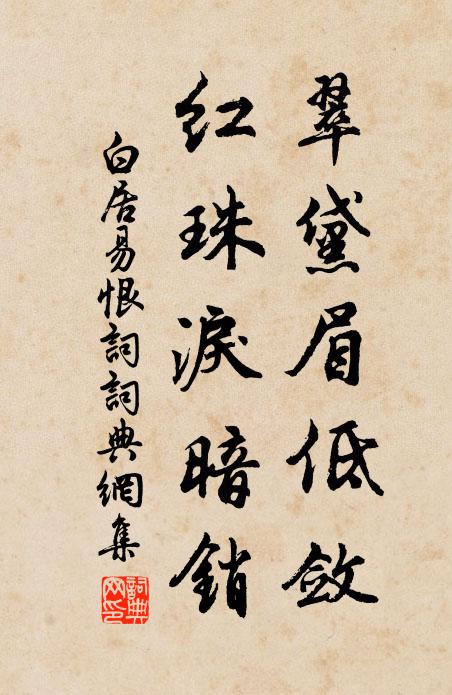 翠黛眉低斂
紅珠淚暗銷
白居易恨詞詞典網集